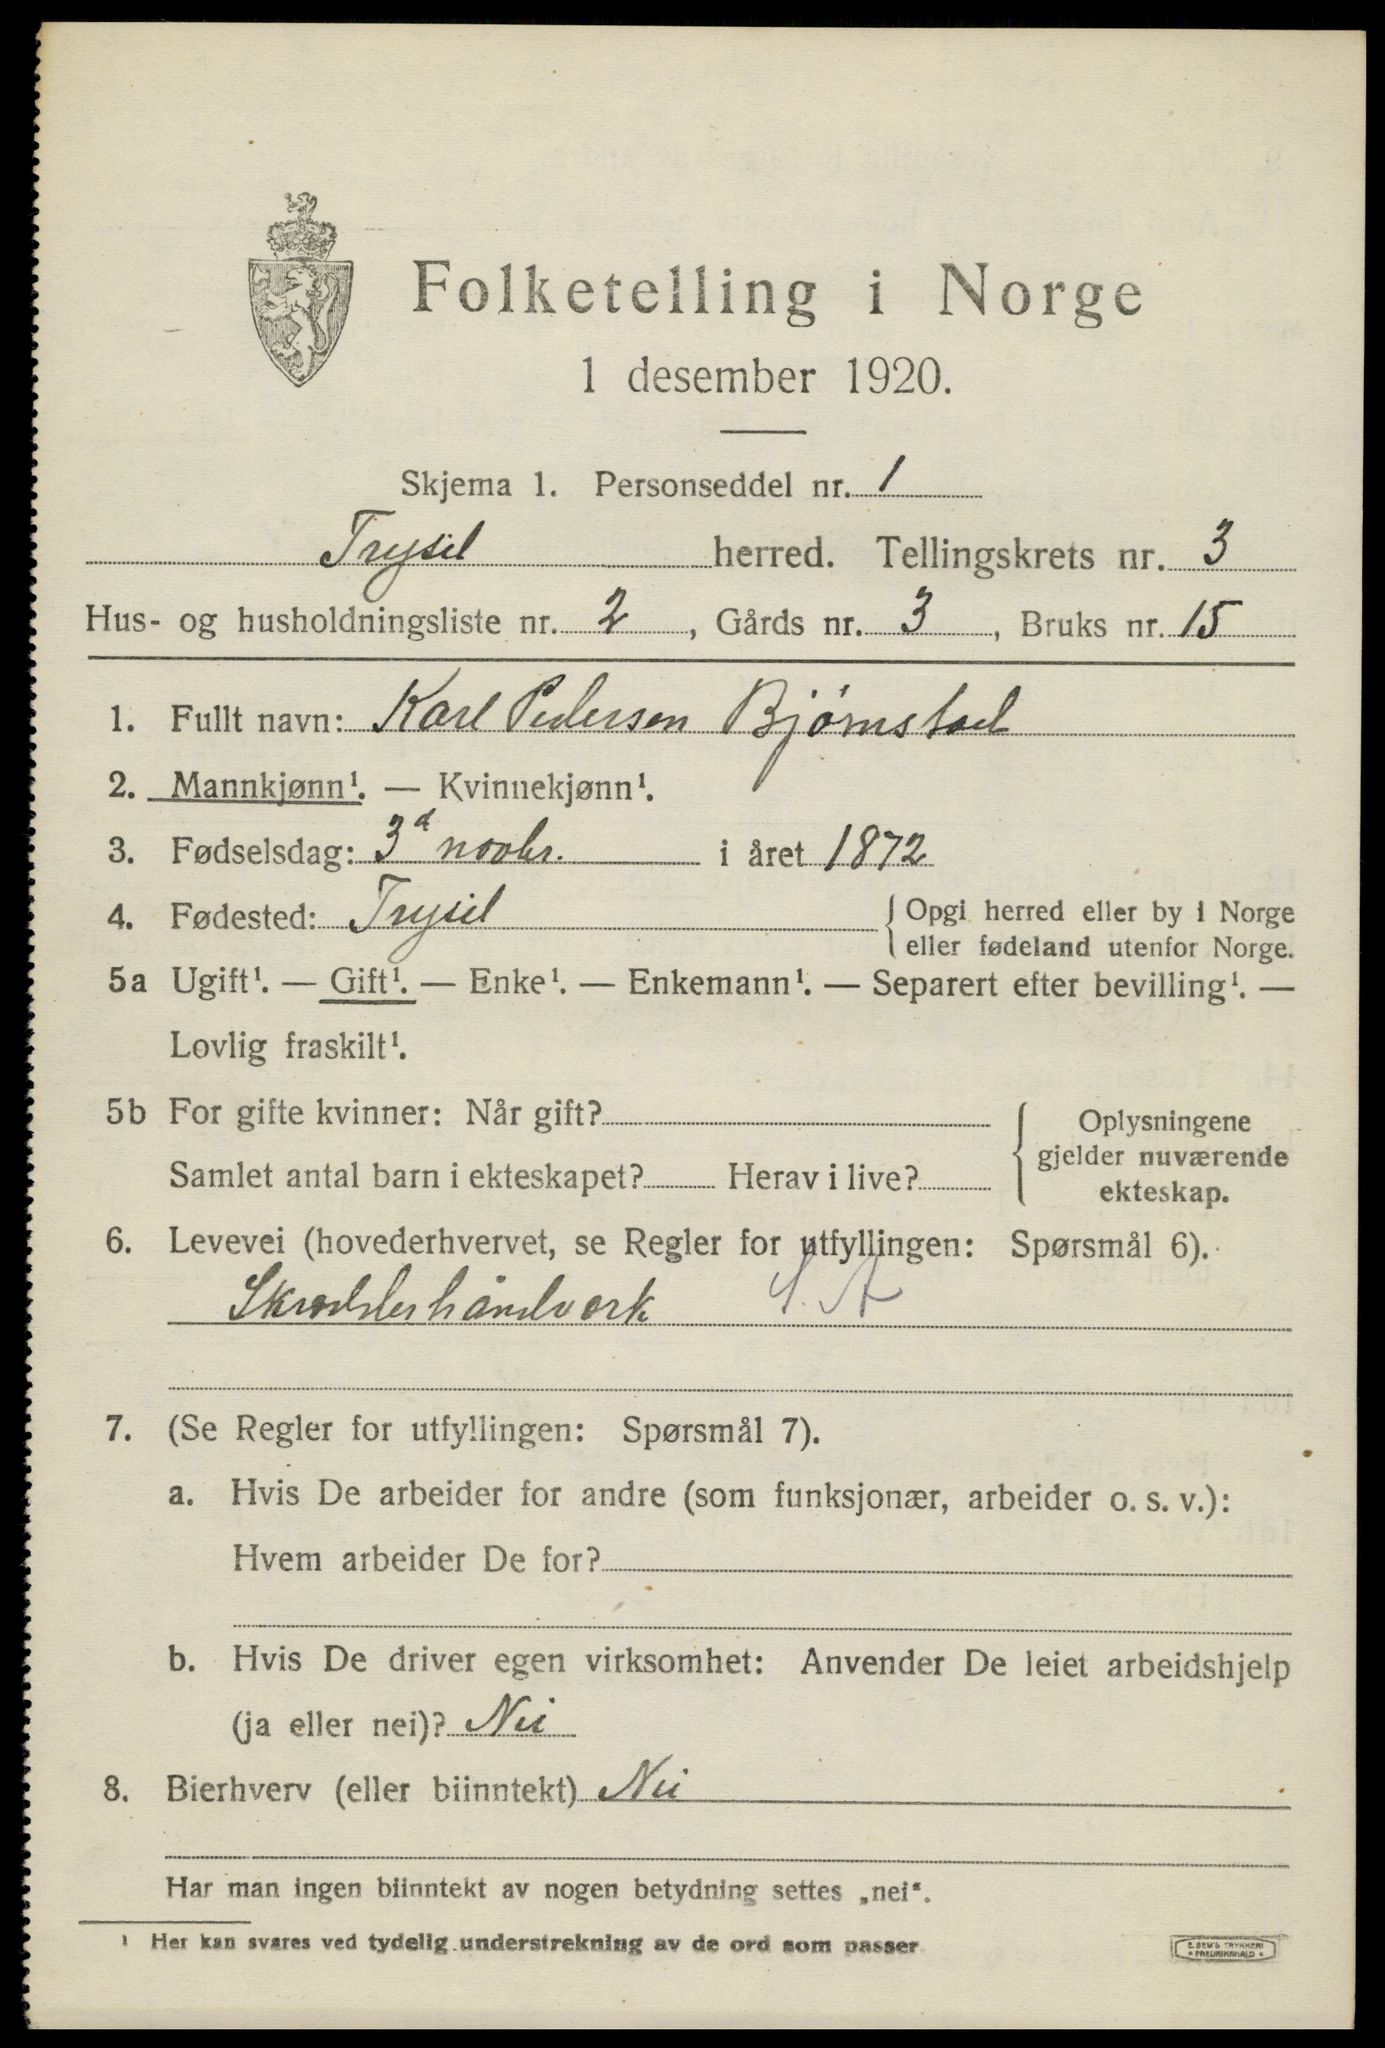 Folketelling i Norge
1 desember 1920.
Skjema 1. Personseddel nr. 1
Trysil herred. Tellingskrets nr. 3
Hus- og husholdningsliste nr. 2, Gårds nr. 3, Bruks nr. 15
1. Fullt navn: Karl Pedersen Bjørnstad
2. Mannkjønn¹. — Kvinnekjønn¹.
3. Fødselsdag: 3d novbr. i året 1872
4. Fødested: Trysil { Opgi herred eller by i Norge
eller fødeland utenfor Norge.
5a Ugift¹. — Gift¹. — Enke¹. — Enkemann¹. — Separert efter bevilling¹. —
Lovlig fraskilt¹.
5b For gifte kvinner: Når gift?
Samlet antal barn i ekteskapet? Herav i live?
{ Oplysningene
gjelder nuværende
ekteskap.
6. Levevei (hovederhvervet, se Regler for utfyllingen: Spørsmål 6).
Skredderhåndverk S. A
7. (Se Regler for utfyllingen: Spørsmål 7).
a. Hvis De arbeider for andre (som funksjonær, arbeider o. s. v.):
Hvem arbeider De for?
b. Hvis De driver egen virksomhet: Anvender De leiet arbeidshjelp
(ja eller nei)? Nei
8. Bierhverv (eller biinntekt) Nei
Har man ingen biinntekt av nogen betydning settes „nei“.
¹ Her kan svares ved tydelig understrekning av de ord som passer
E. SEM'S TRYKKERI
• FREDRIKSHALD •